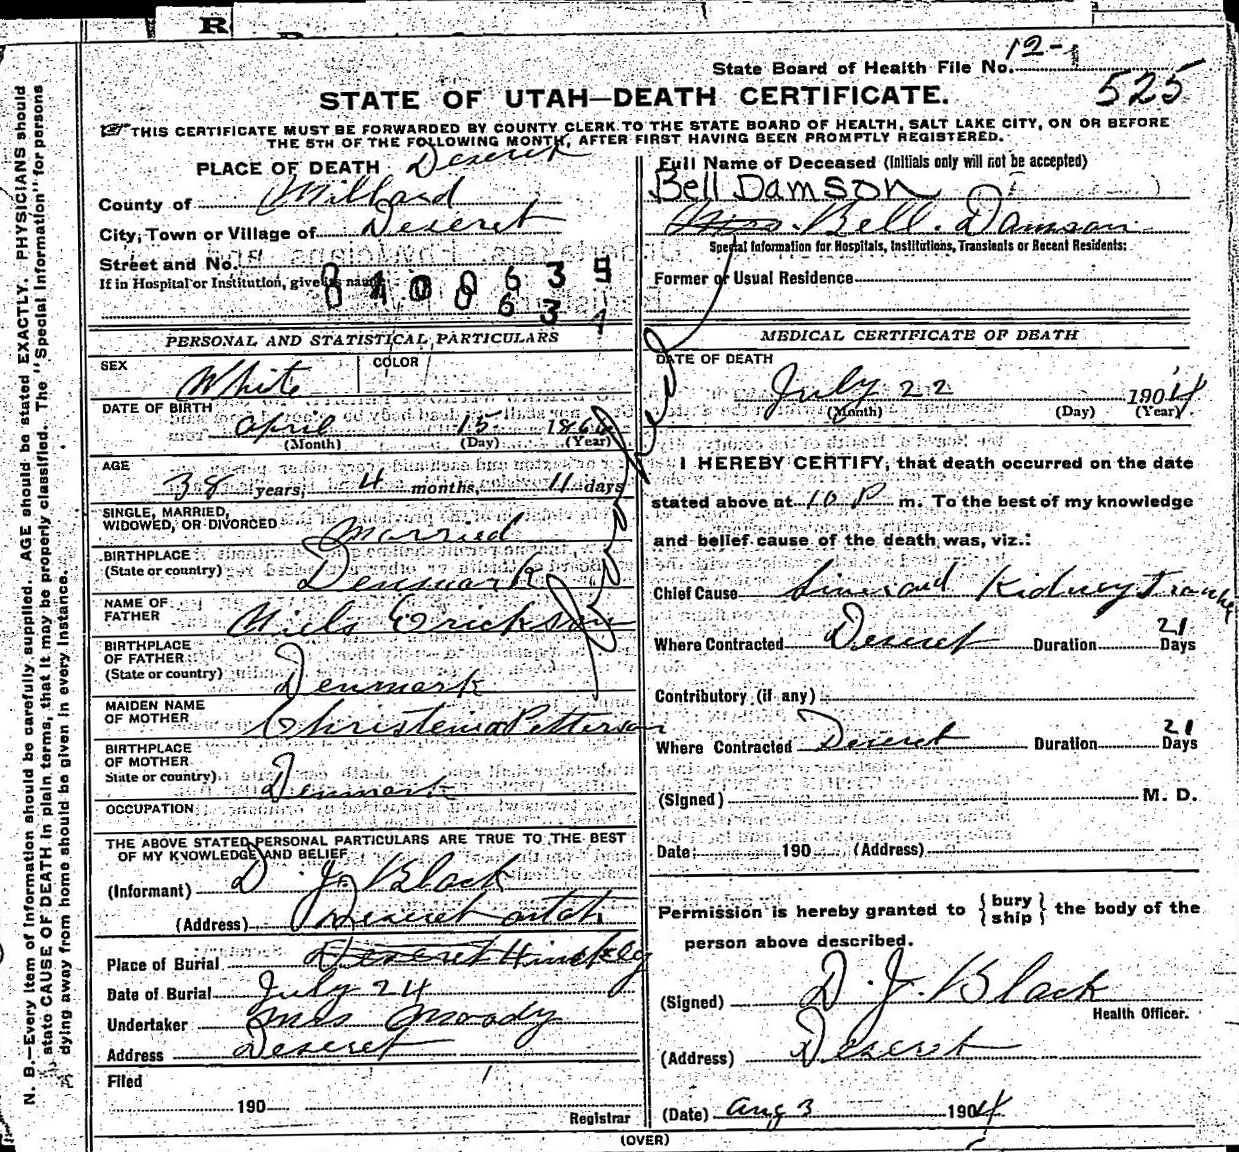 R
State Board of Health File No. 12-1
525
STATE OF UTAH—DEATH CERTIFICATE.
THIS CERTIFICATE MUST BE FORWARDED BY COUNTY CLERK TO THE STATE BOARD OF HEALTH, SALT LAKE CITY, ON OR BEFORE
THE 5TH OF THE FOLLOWING MONTH, AFTER FIRST HAVING BEEN PROMPTLY REGISTERED.
PLACE OF DEATH Deseret
County of Millard
City, Town or Village of Deseret
Street and No.
If in Hospital or Institution, give its name
PERSONAL AND STATISTICAL PARTICULARS
SEX White COLOR
DATE OF BIRTH
April 15 186
(Month) (Day) (Year)
AGE
38 years, 4 months, 11 days
SINGLE, MARRIED,
WIDOWED, OR DIVORCED Married
BIRTHPLACE
(State or country) Denmark
NAME OF
FATHER Niels Erickson
BIRTHPLACE
OF FATHER
(State or country) Denmark
MAIDEN NAME
OF MOTHER Christena Petterson
BIRTHPLACE
OF MOTHER
State or country) Denmark
OCCUPATION
THE ABOVE STATED PERSONAL PARTICULARS ARE TRUE TO THE BEST
OF MY KNOWLEDGE AND BELIEF
(Informant) D. J. Black
(Address) Deseret utah
Place of Burial Deseret Hinckley
Date of Burial July 24
Undertaker Mrs Moody
Address Deseret
Filed
190
Registrar
Full Name of Deceased (Initials only will not be accepted)
Bell Damson
Mrs. Bell. Damson
Special Information for Hospitals, Institutions, Transients or Recent Residents:
Former or Usual Residence
MEDICAL CERTIFICATE OF DEATH
DATE OF DEATH
July 22 1904
(Month) (Day) (Year)
I HEREBY CERTIFY, that death occurred on the date
stated above at 10 P m. To the best of my knowledge
and belief cause of the death was, viz.:
Chief Cause and Kidney
Where Contracted Deseret Duration 21 Days
Contributory (if any)
Where Contracted Deseret Duration 21 Days
(Signed) M. D.
Date: 190 (Address)
Permission is hereby granted to {bury
ship} the body of the
person above described.
(Signed) D. J. Black
Health Officer.
(Address) Deseret
(Date) Aug 3 1904
(OVER)
N. B.—Every item of information should be carefully supplied. AGE should be stated EXACTLY. PHYSICIANS should
state CAUSE OF DEATH in plain terms, that it may be properly classified. The "Special Information" for persons
dying away from home should be given in every instance.